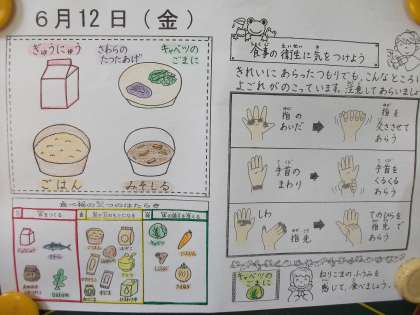 6月12日(金)
ぎゅうにゅう
さわらの
たつたあげ
キャベツの
ごまに
ごはん
みそしる
食べ物の三つのはたらき
食事の衛生に気をつけよう
きれいにあらったつもりでも、こんなところに
よごれがのこっています。注意してあらいましょ
指の
あいだ
指を
交ささせて
あらう
手首の
まわり
手首を
くるくる
あらう
しわ
指先
てのひらを
指先で
あらう
キャベツの
ごまに
ねりごまの、ふうみを
感じて、食べましょう。